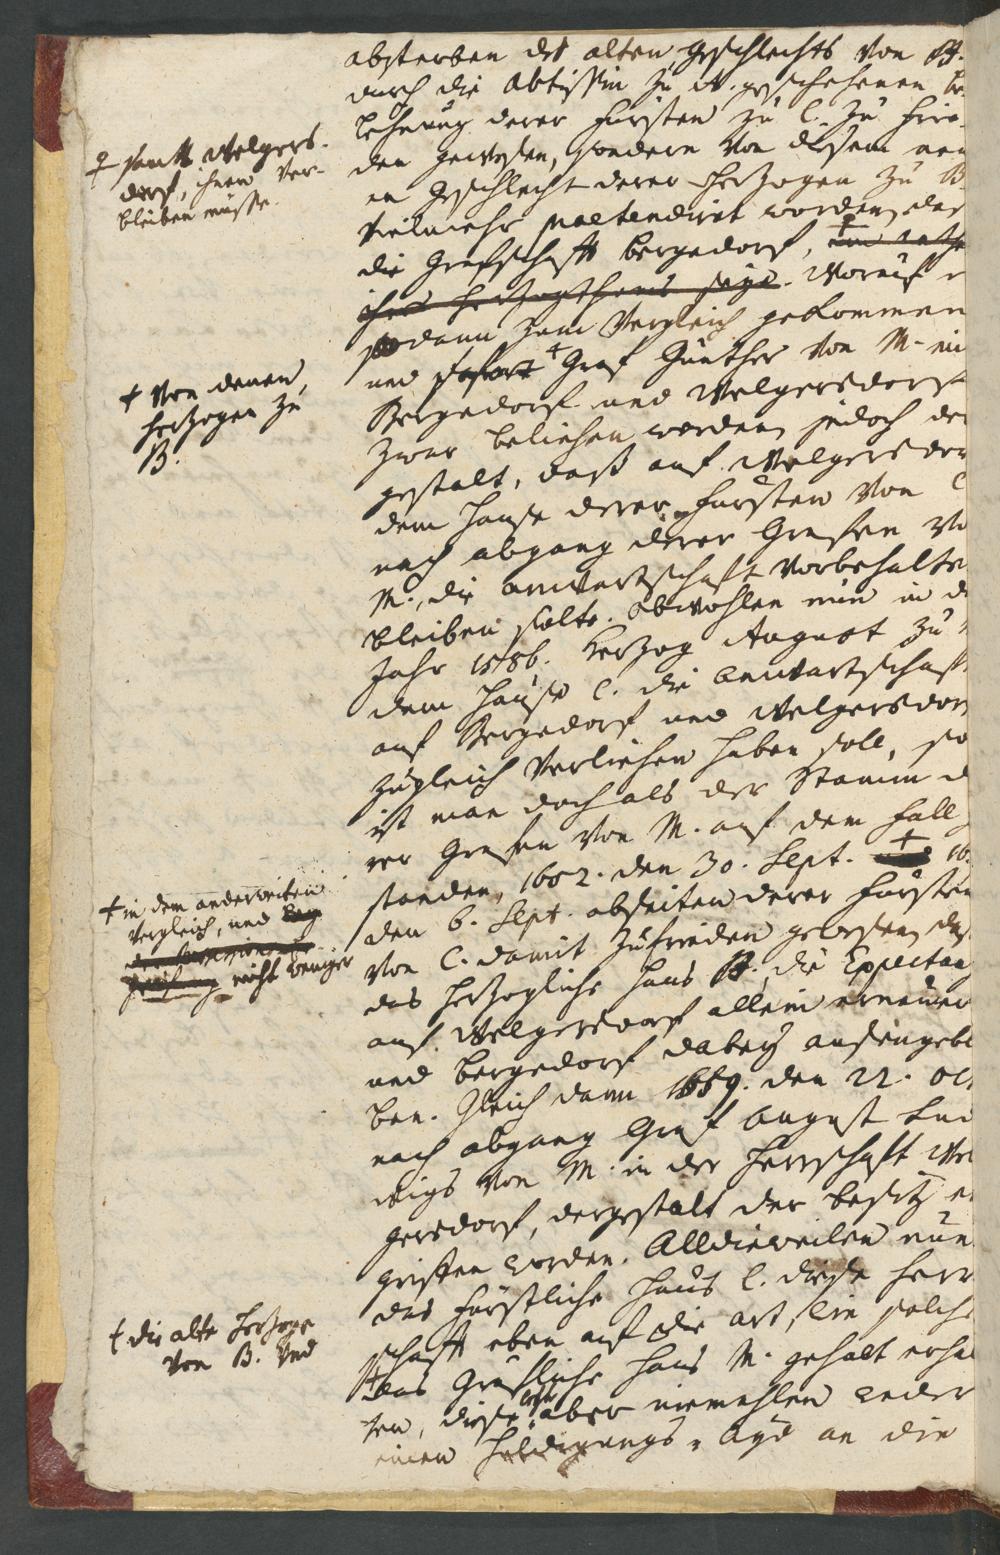 absterben des alten Geschlechts von B.
durch die Abtißin zu N. geschehenen be-
lehnung derer Fürsten zu C. zu frie-
den gewesen, sondern von diesem neu
en Geschlecht derer Hertzogen zu B
vielmehr praetendiret worden, das
die Grafschafft Bergedorf,
ihres Hertzogthums seye. Worauf
so dann zum Vergleich gekommen
und Graf Günther von M. mi
Bergedorf und Welgersdorf
zwar beliehen worden, jedoch der
gestalt, daß auf Welgersdor
dem Hause derer Fürsten von C
nach abgang derer Grafen vo
M., die anwartschafft vorbehalte
bleiben solte. Obwohlen nun in d
Jahr 1586. Hertzog August zu
dem Hause C. die anwartschafft
auf Bergedorf und Welgersdor
zugleich verliehen haben soll, so
ist man doch als der Stamm d
rer Grafen von M. auf dem fall
standen, 1602. den 30. Sept. 16
den 6. Sept. abseiten derer Fürsten
von C. damit zufrieden gewesen, das
das Hertzogliche Haus B. die Expectanz
auf Welgersdorf allein erneuer
und Bergedorf dabey aussengebl
ben. Gleich dann 1659. den 22. Oct
nach abgang Graf August Lud
wigs von M. in der Herrschafft Wel
gersdorf, dergestalt der besitz er
griffen worden. Alldieweilen nun
das Fürstliche Haus C. diese Herr
schafft eben auf die art, wie solche
das Gräfliche Haus M. gehabt erhal
ten, diese aber niemahlen weder
einen Huldigungs-Ayd an die
♀ samt Welgers-
dorf, ihnen ver-
bleiben müsse.
+ von denen,
Hertzogen zu
B.
+ in dem anderweiten
Vergleich, und
nicht weniger
+ die alte Hertzoge
von B. und